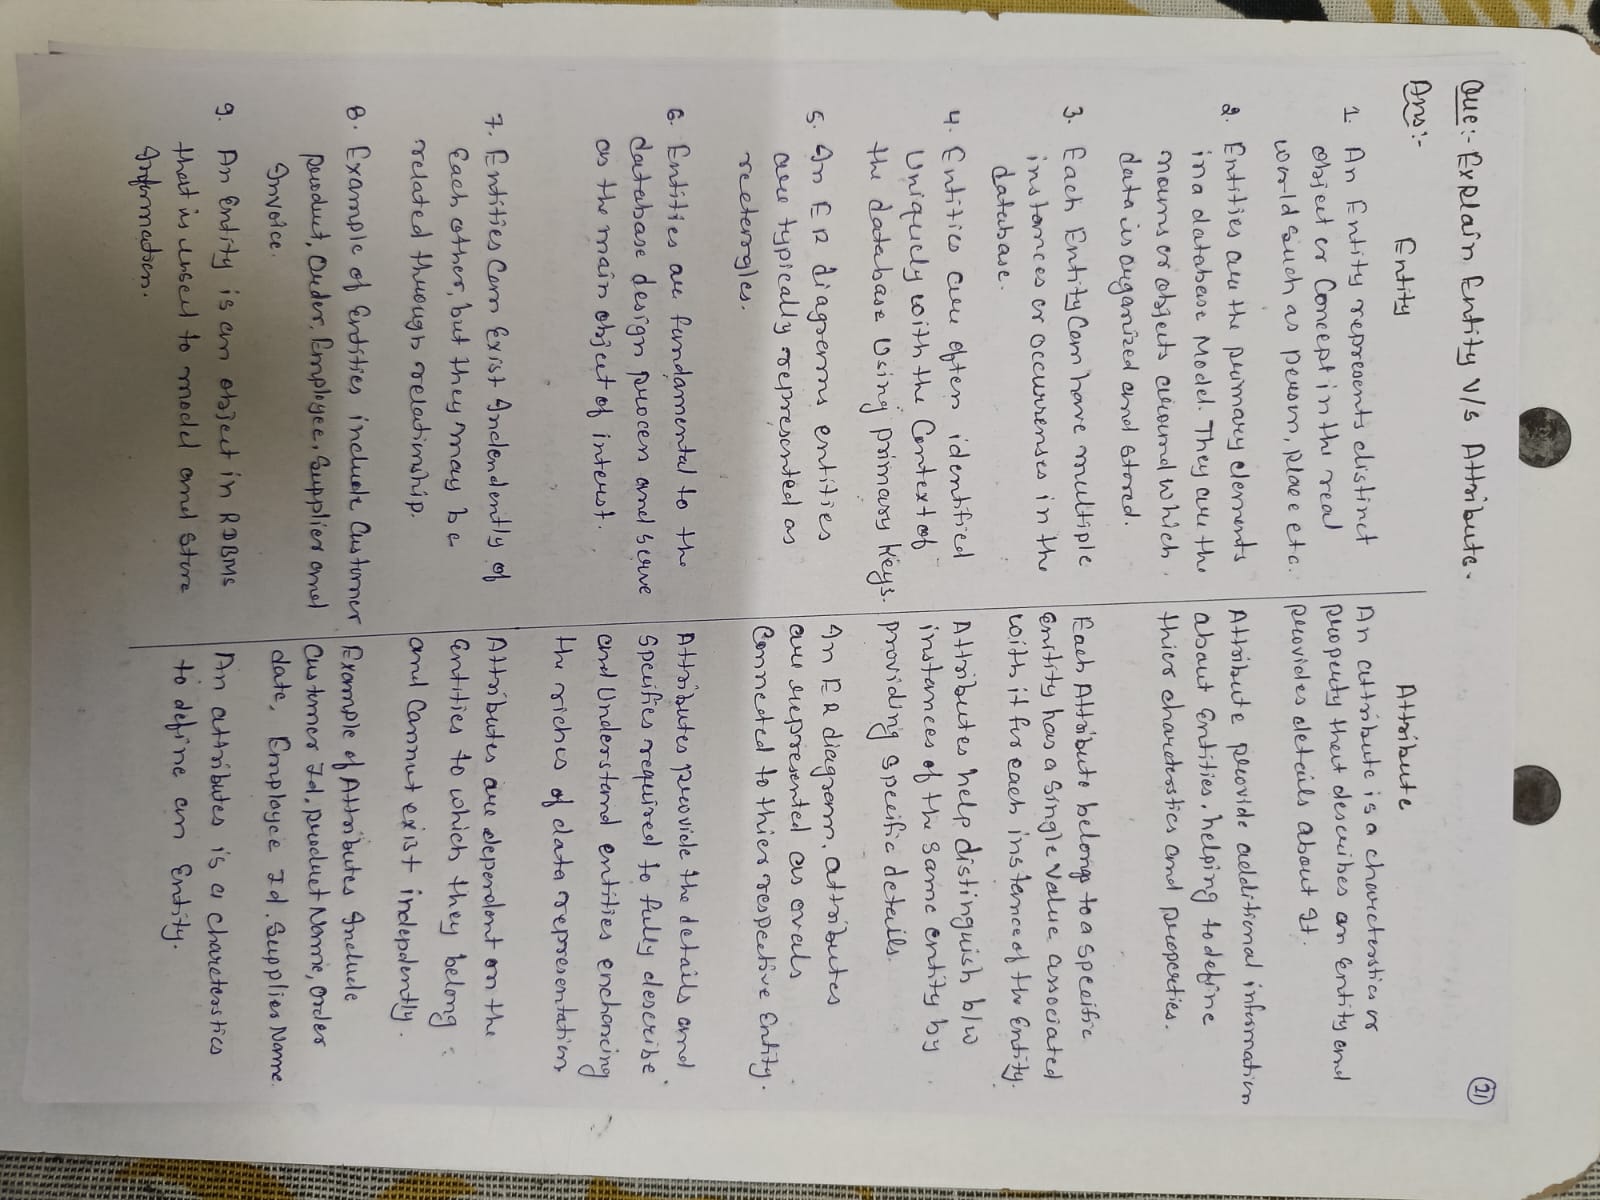 21
Que:- Explain Entity V/s Attribute.
Ans:-
Entity
1. An Entity represents distinct
object or Concept in the real
world such as person, place etc.
2. Entities are the primary elements
in a database Model. They are the
nouns or objects around which
data is organized and stored.
3. Each Entity Can have multiple
instances or occurrenses in the
database.
4. Entities are often identified
Uniquely with the Context of
the database Using primary Keys.
5. In ER diagrems entities
are typically represented as
rectengles.
6. Entities are fundamental to the
database design procen and serve
as the main object of interest.
7. Entities Can Exist Indendently of
Each other, but they may be
related through relationship.
8. Example of Entities include Customer
product, Order, Employee, Supplier and
Invoice.
9. An Entity is an object in RDBMS
that is used to model and store
Information.
Attribute
An attribute is a charecterstics or
property that describes an Entity and
provides details about It.
Attribute provide additional information
about Entities, helping to define
thier charecterstics and properties.
Each Attribute belongs to a specific
Entity has a Single Value associated
with it for each instence of the Entity.
Attributes help distinguish b/w
instances of the Same entity by
providing specific details.
In ER diagram, attributes
are represented as ovals
Connected to thier respective Entity.
Attributes provide the details and
specifies required to fully describe
and Understand entities enchancing
the riches of data representation
Attributes are dependent on the
Entities to which they belong
and Cannot exist indepdently.
Example of Attributes Include
Customer Id, product Name, order
date, Employee Id, Supplier Name.
An attributes is a charecterstics
to define an Entity.